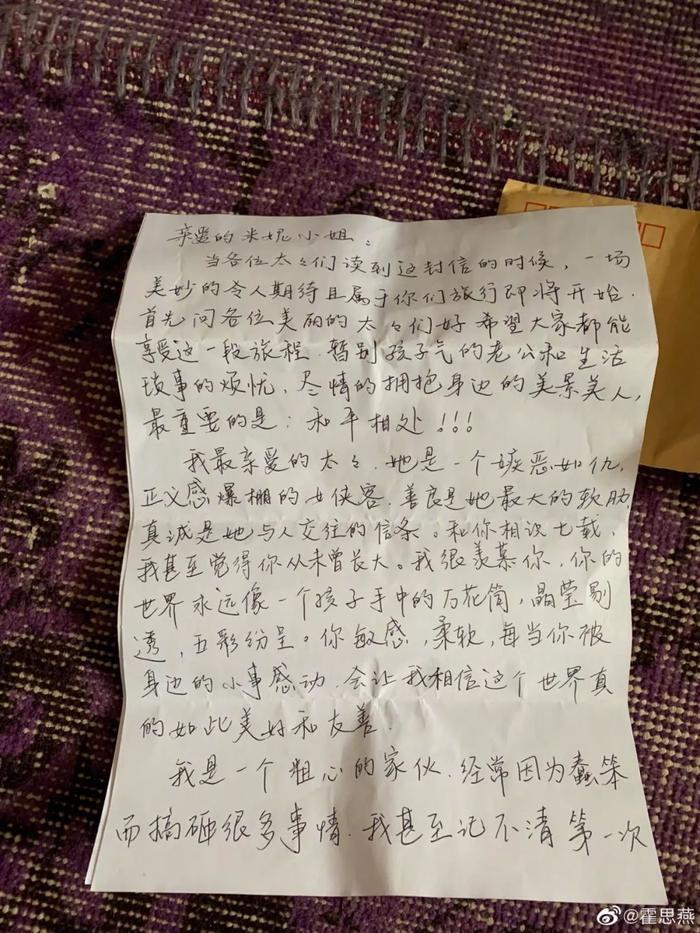 亲爱的米妮小姐：
当各位太々们读到这封信的时候，一场
美妙的令人期待且属于你们旅行即将开始.
首先问各位美丽的太々们好 希望大家都能
享受这一段旅程.暂别孩子气的老公和生活
琐事的烦忧，尽情的拥抱身边的美景美人，
最重要的是：和平相处！！！
我最亲爱的太々.她是一个嫉恶如仇，
正义感爆棚的女侠客.善良是她最大的软肋，
真诚是她与人交往的信条。和你相识七载，
我甚至觉得你从未曾长大。我很羡慕你，你的
世界永远像一个孩子手中的万花筒，晶莹剔
透，五彩纷呈。你敏感，柔软，每当你被
身边的小事感动.会让我相信这个世界真
的如此美好和友善.
我是一个粗心的家伙.经常因为蠢笨
而搞砸很多事情.我甚至记不清第一次
@霍思燕